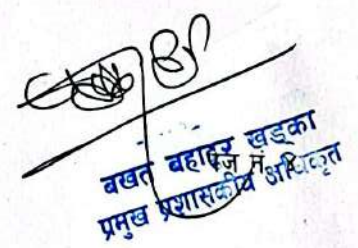 बखत बहादुर खड्का
पेज नं.
प्रमुख प्रशासकीय अधिकृत